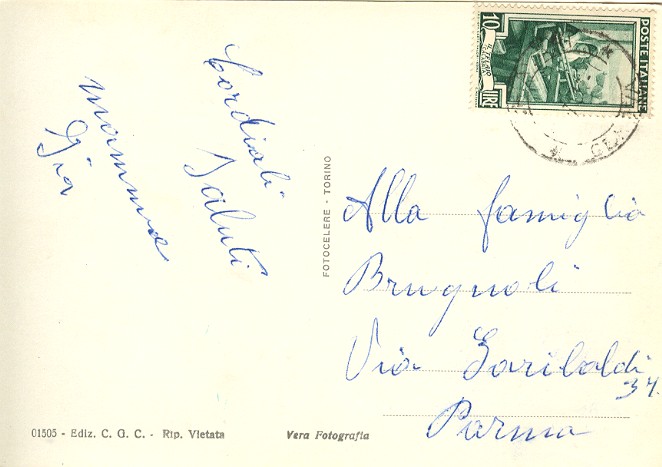 Cordiali
Saluti
mamma
Pia
POSTE ITALIANE
10
LIRE
FOTOCELERE - TORINO
Alla famiglia
Brugnoli
Via Garibaldi
37.
Parma
01505 - Ediz. C. G. C. - Rip. Vietata
Vera Fotografia